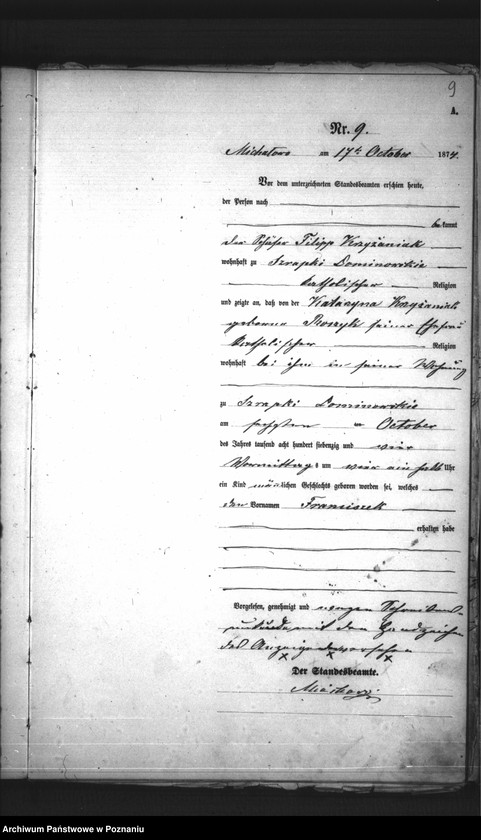 9
A.
Nr. 9.
Michałowo am 17t October 1874.
Vor dem unterzeichneten Standesbeamten erschien heute,
der Person nach
bekannt
der Schäfer Filipp Krzyżaniak
wohnhaft zu Szrapki Dominowskie
katholischer Religion
und zeigte an, daß von der Katarzyna Krzyżaniak
geborene seiner Ehefrau
katholischer Religion
wohnhaft bei ihm in seiner Wohnung
zu Szrapki Dominowskie
am sechsten October
des Jahres tausend acht hundert siebenzig und vier
Vormittags um vier ein halb Uhr
ein Kind männlichen Geschlechts geboren worden sei, welches
den Vornamen Franciszek
erhalten habe
Vorgelesen, genehmigt und wegen Schreibens
mit den Handzeichen
des Anzeigenden versehen
x x x
Der Standesbeamte.
Archiwum Państwowe w Poznaniu